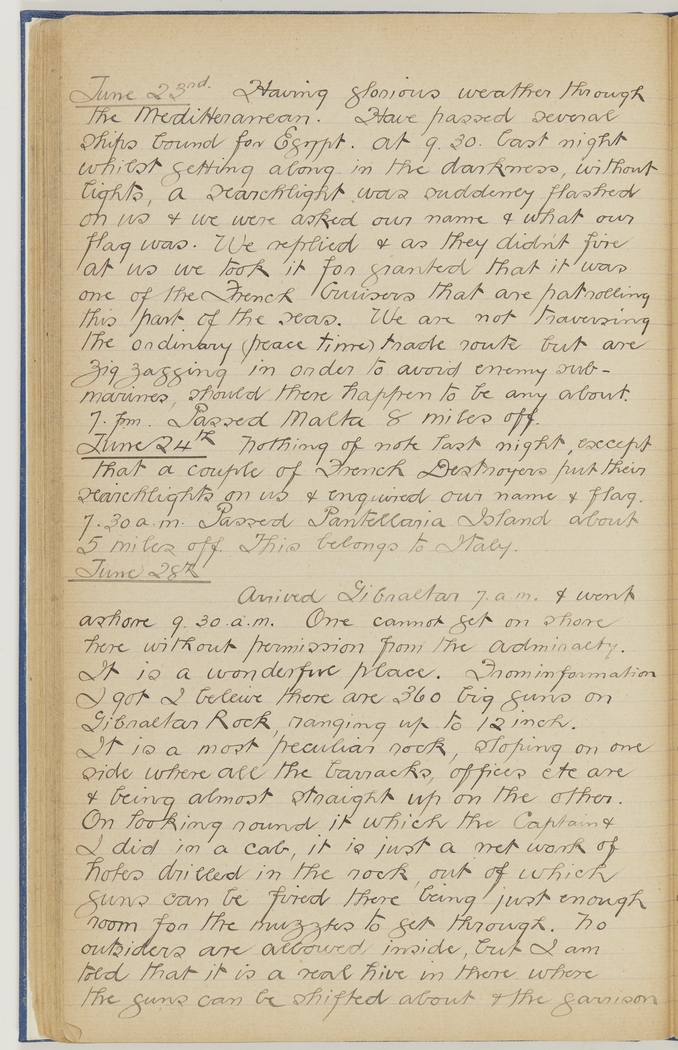 June 23rd. Having glorious weather through
the Mediterranean. Have passed several
ships bound for Egypt. At 9.30. last night
whilst getting along in the darkness, without
lights, a searchlight was suddenly flashed
on us & we were asked our name & what our
flag was. We replied & as they didn't fire
at us we took it for granted that it was
one of the French Cruisers that are patrolling
this part of the seas. We are not traversing
the ordinary (peace time) trade route but are
zig zagging in order to avoid enemy sub-
marines, should there happen to be any about.
7. pm. Passed Malta 8 miles off.
June 24th Nothing of note last night, except
that a couple of French Destroyers put their
searchlights on us & enquired our name & flag.
7.30 a.m. Passed Pantellaria Island about
5 miles off. This belongs to Italy.
June 28th
Arrived Gibraltar 7.a.m. & went
ashore 9.30.a.m. One cannot get on shore
here without permission from the Admiralty.
It is a wonderful place. From information
I got I beleive there are 360 big guns on
Gibraltar Rock, ranging up to 12 inch.
It is a most peculiar rock, sloping on one
side where all the barracks, offices etc are
& being almost straight up on the other.
On looking round it which the Captain &
I did in a cab, it is just a net work of
holes drilled in the rock out of which
guns can be fired there being just enough
room for the muzzles to get through. No
outsiders are allowed inside, but I am
told that it is a real hive in there where
the guns can be shifted about & the garrison